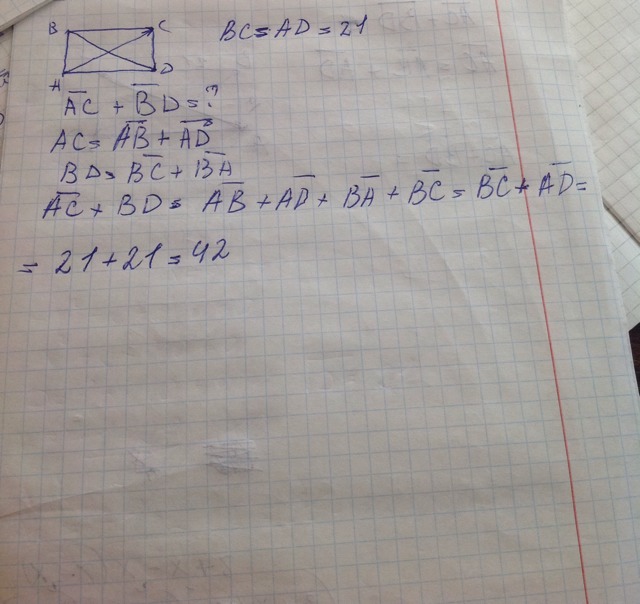 B C BC = AD = 21
A D
A̅C̅ + B̅D̅ = ?
AC = A̅B̅ + A̅D̅
BD = B̅C̅ + B̅A̅
A̅C̅ + BD = A̅B̅ + A̅D̅ + B̅A̅ + B̅C̅ = B̅C̅ + A̅D̅ =
= 21 + 21 = 42